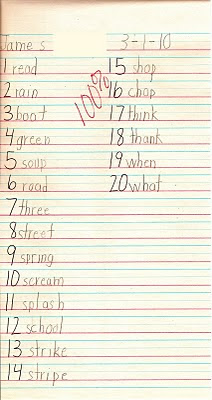 James 3-1-10
1 read
2 rain
3 boat
4 green
5 soup
6 road
7 three
8 street
9 spring
10 scream
11 splash
12 school
13 strike
14 stripe
100%
15 shop
16 chop
17 think
18 thank
19 when
20 what